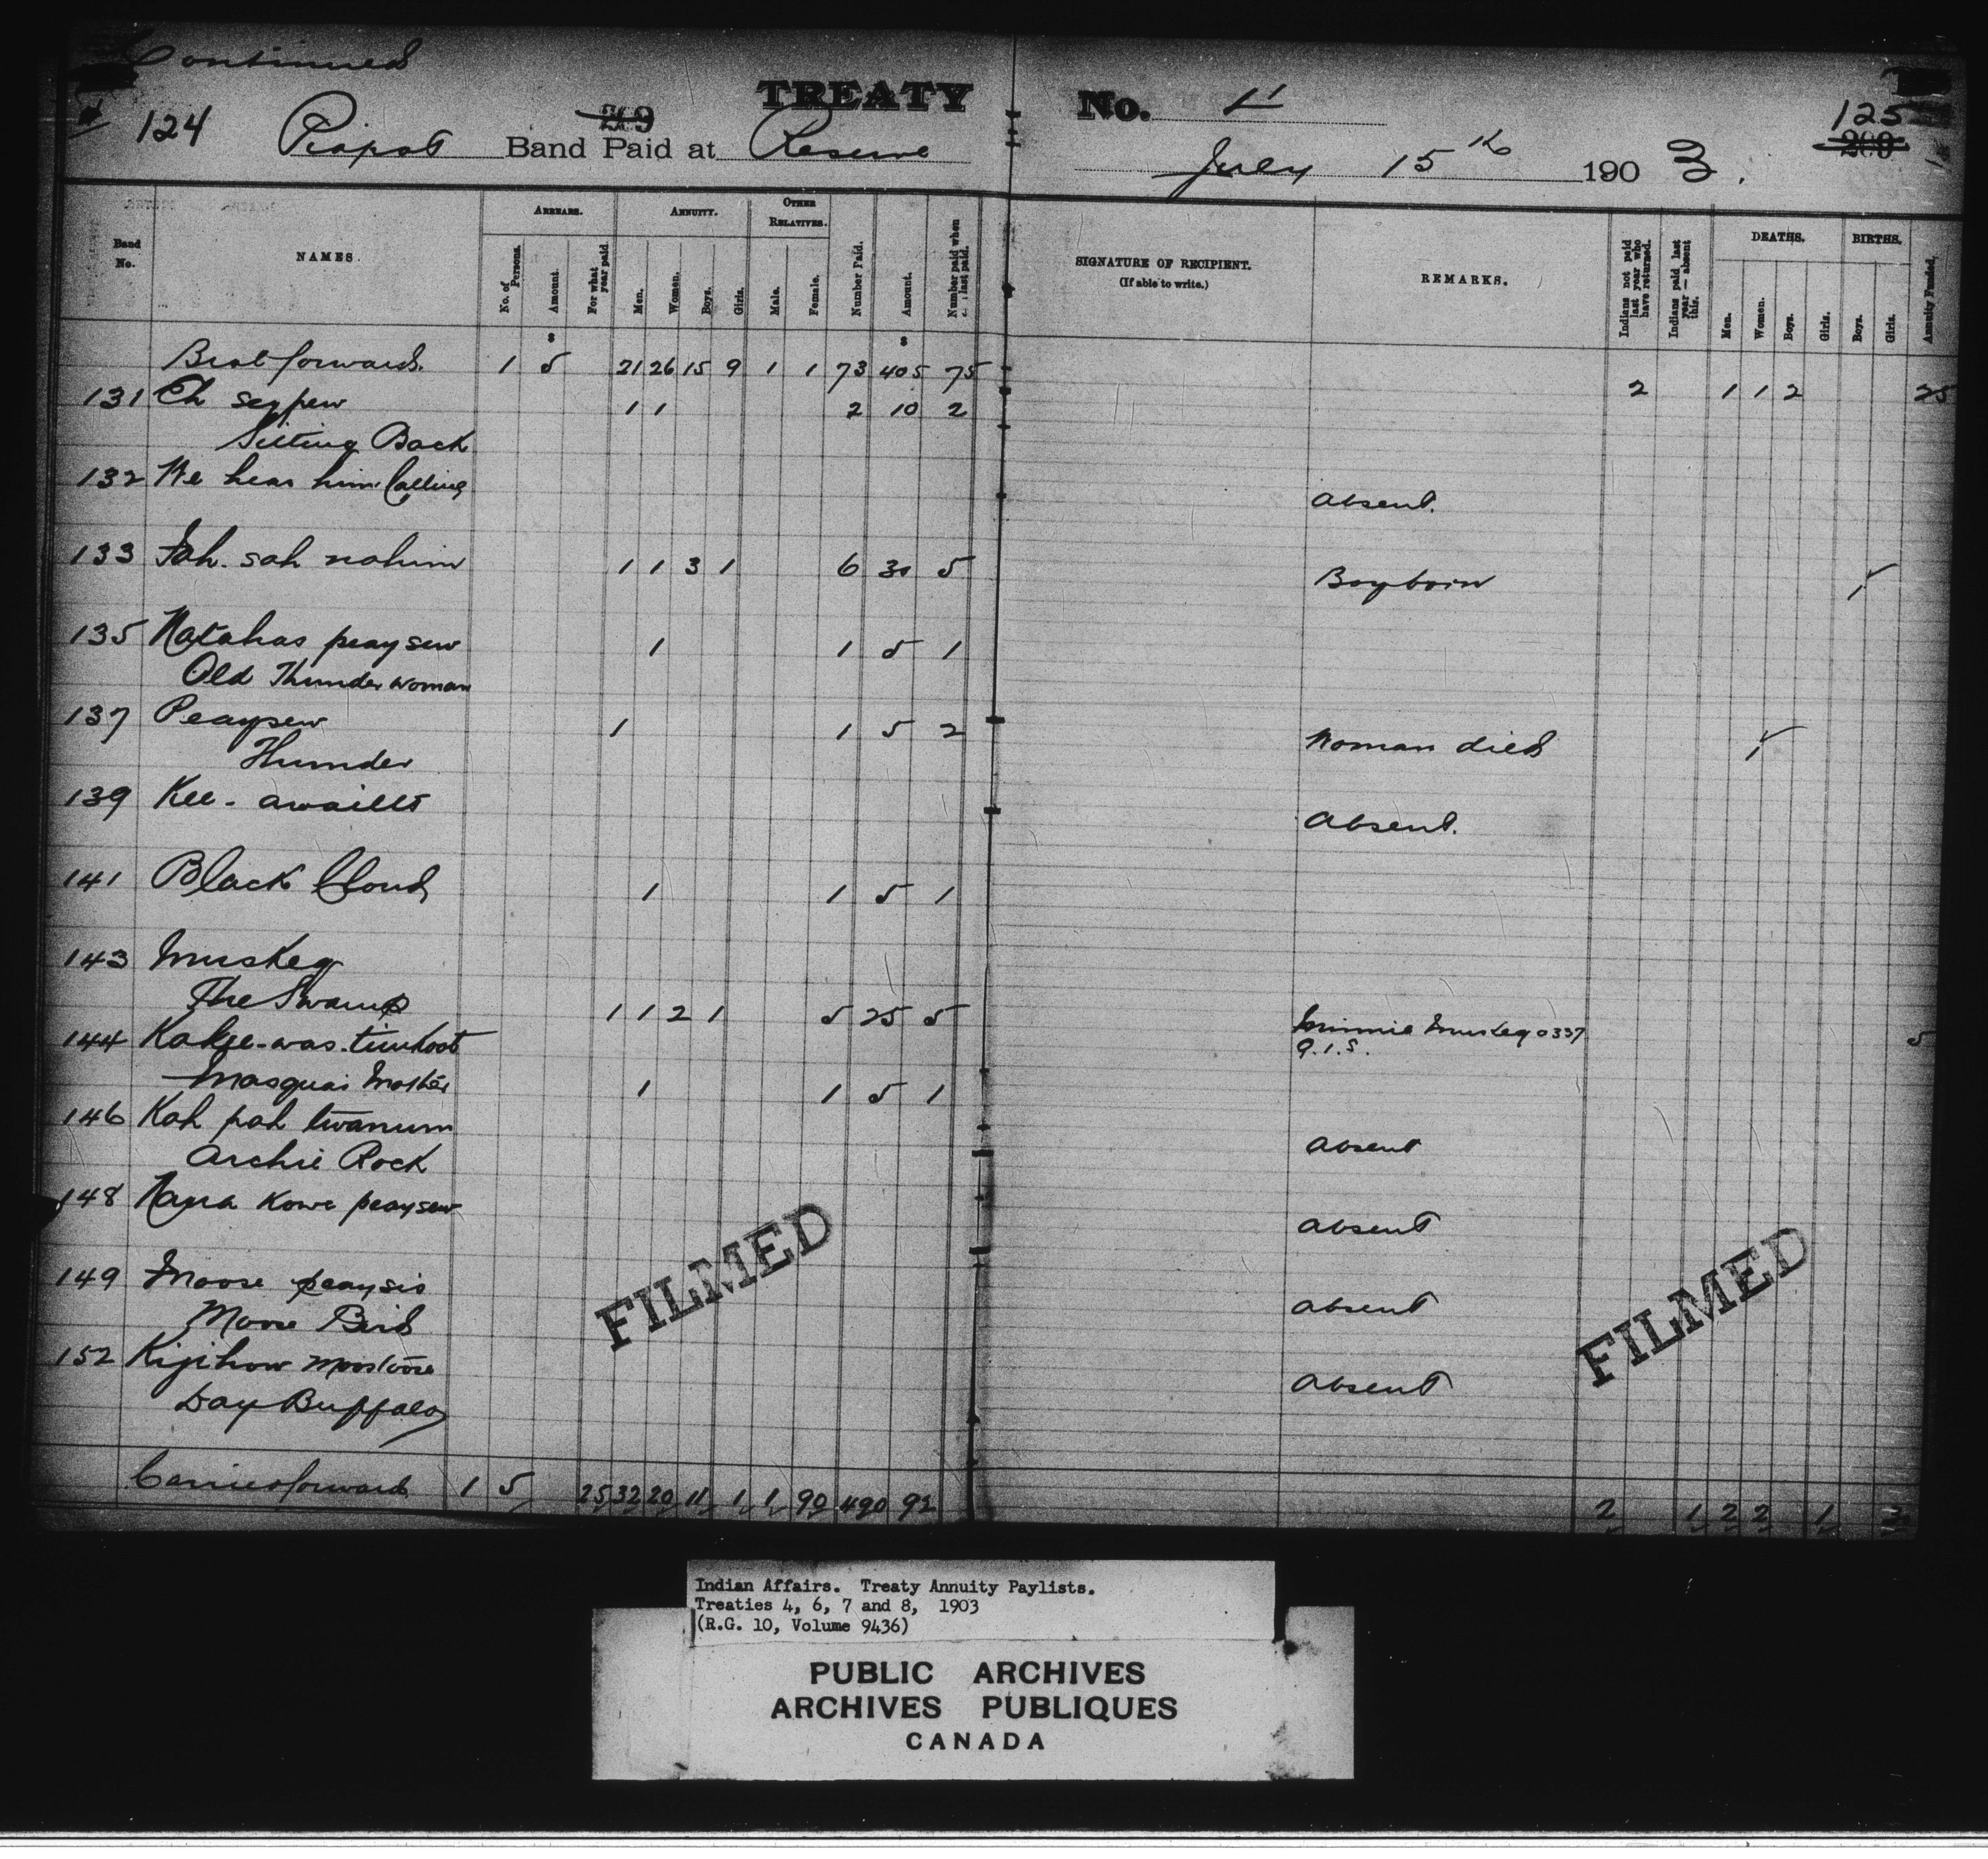 Continued
TREATY No. 4
124 Piapot Band Paid at Reserve July 15th 1903. 125
Band No. NAMES. ARREARS. ANNUITY. OTHER RELATIVES. Number Paid. Amount. Number paid when last paid. SIGNATURE OF RECIPIENT. (If able to write.) REMARKS. Indians not paid last year who have returned. Indians paid last year — absent this. DEATHS. BIRTHS. Annuity Funded.
No. of Persons. Amount. For what year paid. Men. Women. Boys. Girls. Male. Female. Men. Women. Boys. Girls. Boys. Girls.
$ $
Brot forward. 1 5 21 26 15 9 1 1 73 405 75 2 1 1 2 25
131 Ch seypew 1 1 2 10 2
Sitting Back
132 We hear him Calling Absent.
133 Sah. sah nahim 1 1 3 1 6 30 5 Boy born 1
135 Natahas peaysew 1 1 5 1
Old Thunder woman
137 Peaysew 1 1 5 2 Woman died 1
Thunder
139 Kee-awaillt Absent.
141 Black Cloud 1 1 5 1
143 Muskeg
The Swamp 1 1 2 1 5 25 5 Minnie Muskeg 0337 5
Q.I.S.
144 Kakee-was-timhoot
Masquai Mother 1 1 5 1
146 Kah pah twanum Absent
Archie Rock
148 Nana Kowe peaysew Absent
149 Moose peaysis Absent
Moose Bird
152 Kijihow moostoose Absent
Day Buffalo
Carried forward 1 5 25 32 20 11 1 1 90 490 92 2 1 2 2 1 3
FILMED FILMED
Indian Affairs. Treaty Annuity Paylists.
Treaties 4, 6, 7 and 8, 1903
(R.G. 10, Volume 9436)
PUBLIC ARCHIVES
ARCHIVES PUBLIQUES
CANADA